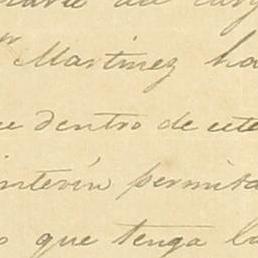 del
r Martinez ha
e dentro de este
interin permita
que tenga la